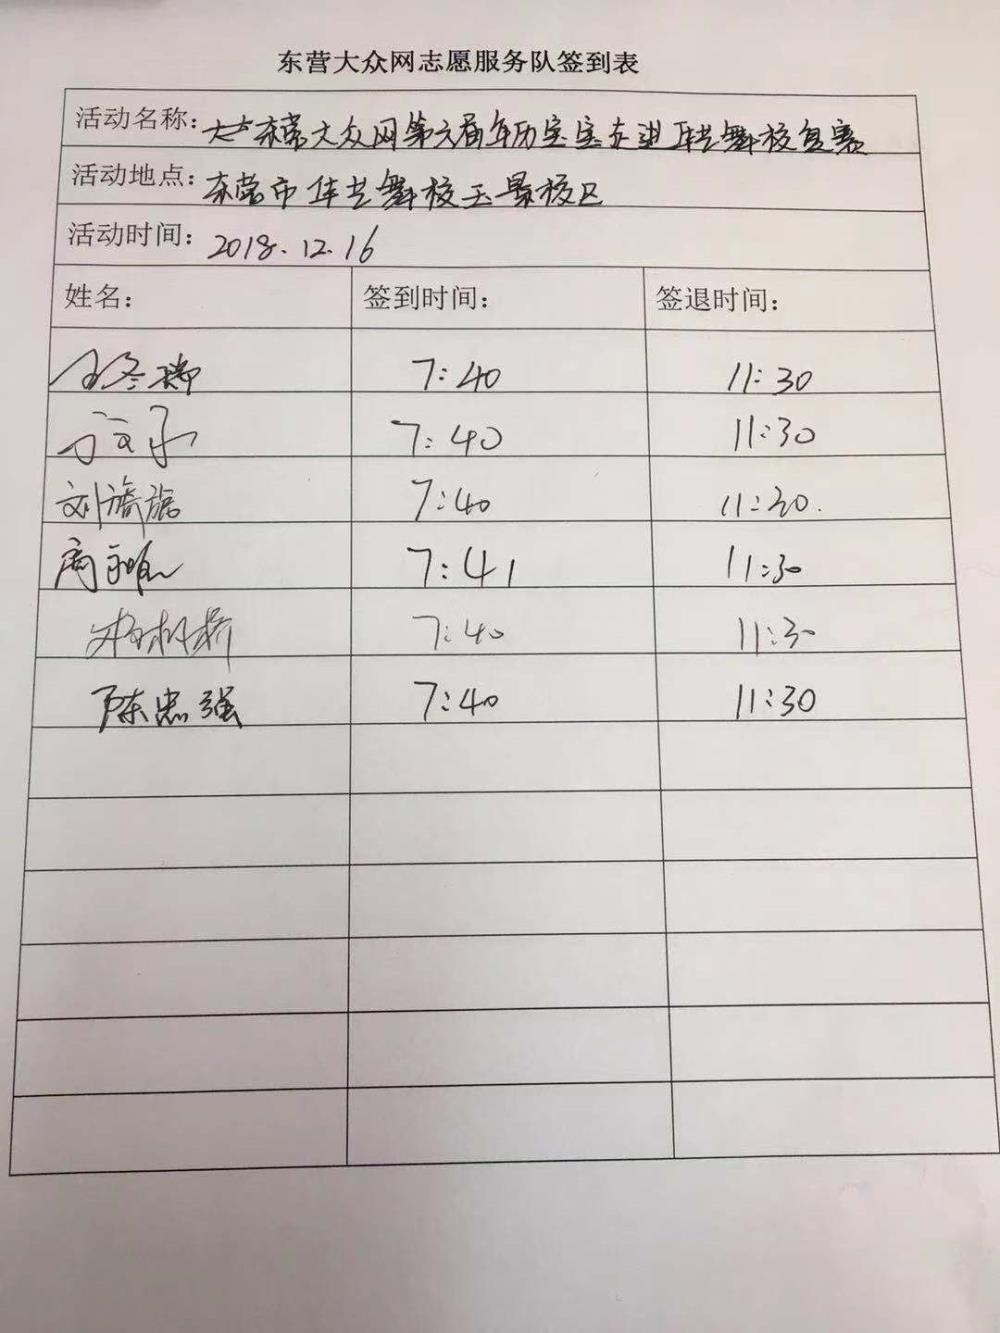 东营大众网志愿服务队签到表
活动名称: 东营大众网第六届年历宝宝走进华艺舞校复赛
活动地点: 东营市华艺舞校玉景校区
活动时间: 2018.12.16
姓名: 签到时间: 签退时间:
7:40 11:30
7:40 11:30
刘旖旎 7:40 11:30.
周 7:41 11:30
7:40 11:30
陈忠强 7:40 11:30